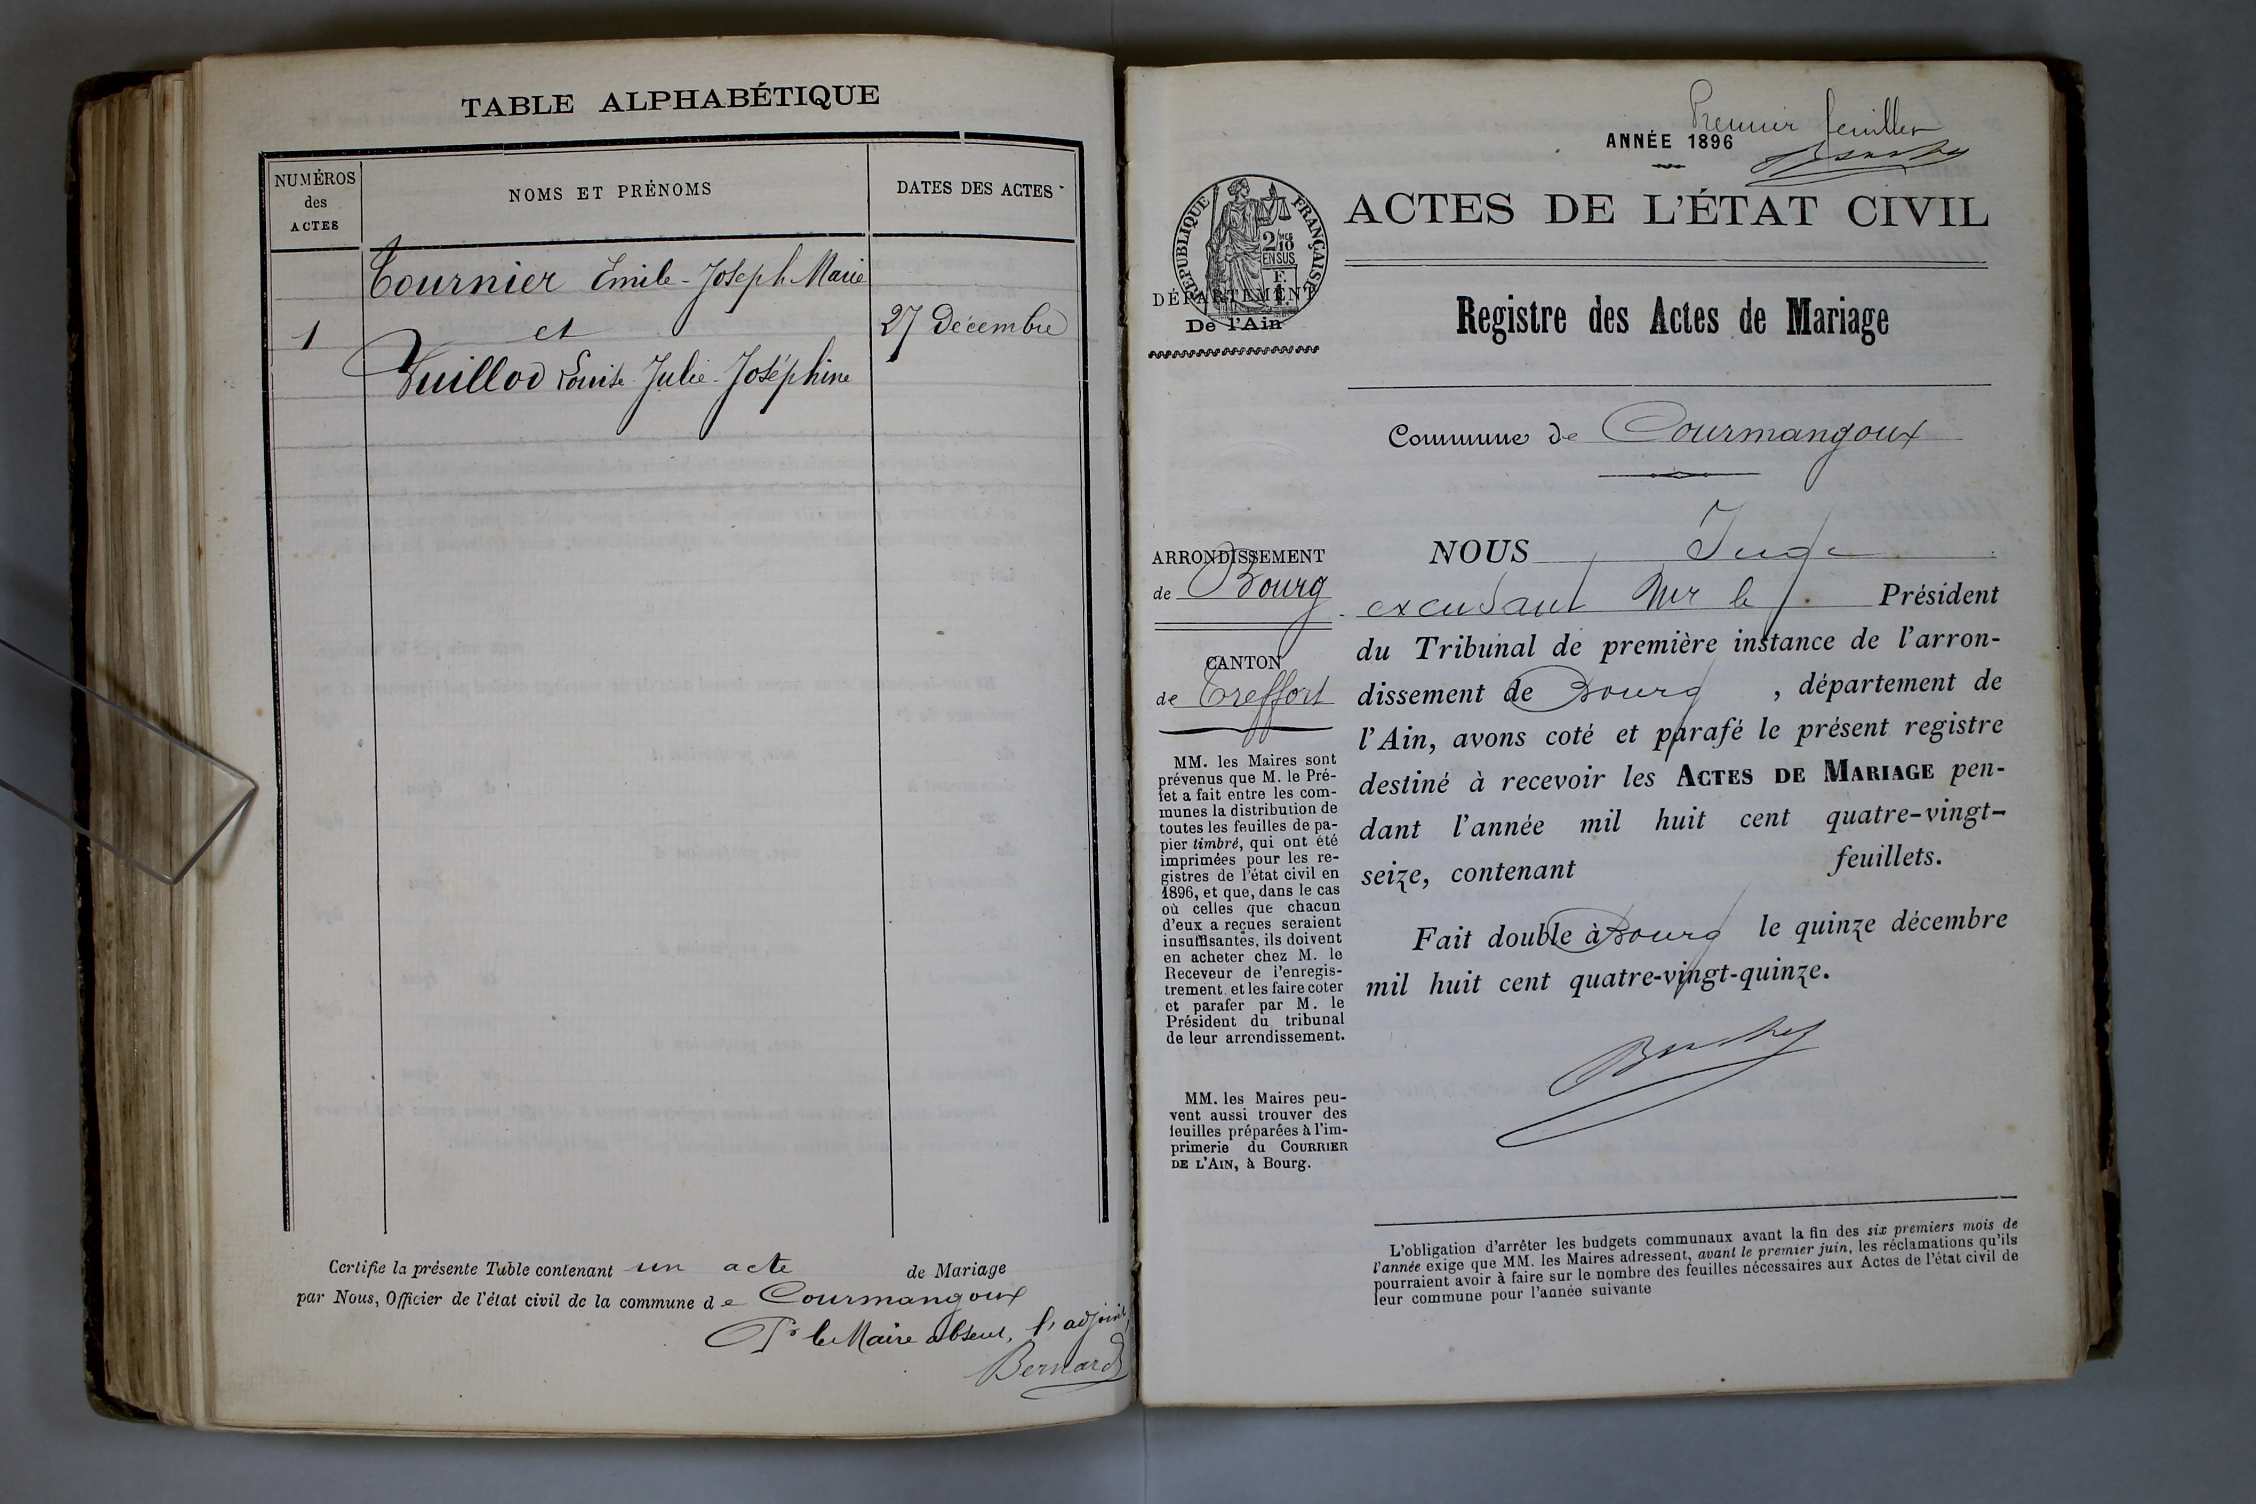 TABLE ALPHABÉTIQUE
NUMÉROS
des
ACTES
NOMS ET PRÉNOMS
DATES DES ACTES
Tournier Emile-Joseph-Marie
1
et
27 Décembre
Vuillod Louise-Julie-Joséphine
Certifie la présente Table contenant un acte de Mariage
par Nous, Officier de l'état civil de la commune de Courmangoux
Pr le Maire absent, l'adjoint,
Bernard
Premier feuillet
ANNÉE 1896
ACTES DE L'ÉTAT CIVIL
RÉPUBLIQUE FRANÇAISE
2/10
EN SUS
DÉPARTEMENT
De l'Ain
Registre des Actes de Mariage
Commune de Courmangoux
ARRONDISSEMENT
de Bourg
CANTON
de Treffort
MM. les Maires sont
prévenus que M. le Pré-
fet a fait entre les com-
munes la distribution de
toutes les feuilles de pa-
pier timbré, qui ont été
imprimées pour les re-
gistres de l'état civil en
1896, et que, dans le cas
où celles que chacun
d'eux a reçues seraient
insuffisantes, ils doivent
en acheter chez M. le
Receveur de l'enregis-
trement et les faire coter
et parafer par M. le
Président du tribunal
de leur arrondissement.
MM. les Maires peu-
vent aussi trouver des
feuilles préparées à l'im-
primerie du COURRIER
DE L'AIN, à Bourg.
NOUS Juge
excusant Mr le Président
du Tribunal de première instance de l'arron-
dissement de Bourg, département de
l'Ain, avons coté et parafé le présent registre
destiné à recevoir les ACTES DE MARIAGE pen-
dant l'année mil huit cent quatre-vingt-
seize, contenant feuillets.
Fait double à Bourg le quinze décembre
mil huit cent quatre-vingt-quinze.
L'obligation d'arrêter les budgets communaux avant la fin des six premiers mois de
l'année exige que MM. les Maires adressent, avant le premier juin, les réclamations qu'ils
pourraient avoir à faire sur le nombre des feuilles nécessaires aux Actes de l'état civil de
leur commune pour l'année suivante